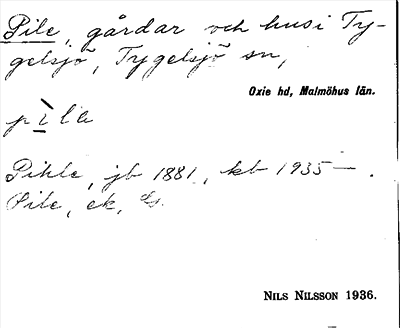 Pile, gårdar och hus i Ty-
gelsjö, Tygelsjö sn,
Oxie hd, Malmöhus län.
Pihle, jb 1881, kb 1935 — .
Pile, ek,
NILS NILSSON 1936.